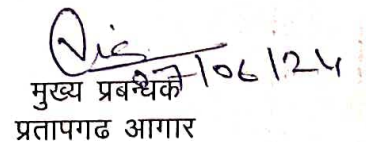 27/06/24
मुख्य प्रबन्धक
प्रतापगढ आगार